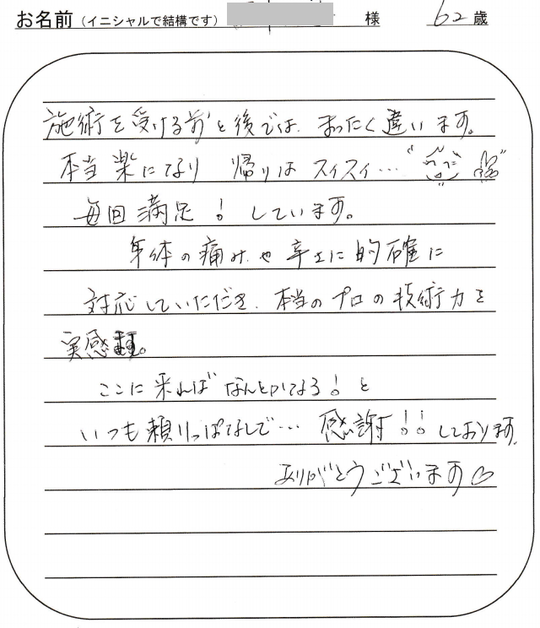 お名前（イニシャルで結構です） 様 62歳
施術を受ける前と後では、まったく違います。
本当楽になり 帰りはスイスイ…
毎回満足！しています。
身体の痛みや辛さに的確に
対応していただき、本当のプロの技術力を
実感
ここに来ればなんとかなる！と
いつも頼りっぱなしで… 感謝！！しております。
ありがとうございます♡